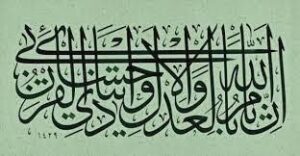 ان الله يأمر بالعدل والاحسان وايتاء ذى القربى
١٤٢٩